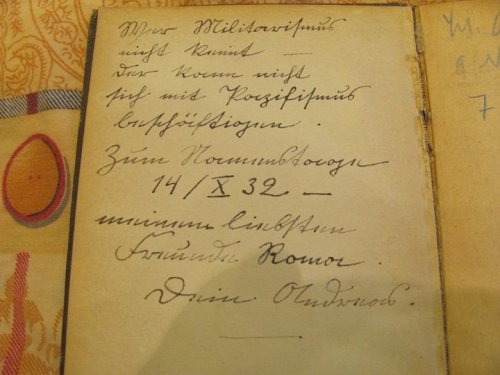 Wer Militarismus
nicht kennt —
der kann nicht
sich mit Pazifismus
beschäftigen.
Zum Namenstage
14/X 32 —
meinem liebsten
Freunde Roma.
Dein Andreas.
7